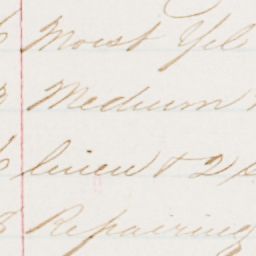 Moist Yel
Medium
linen & 2
Repairing